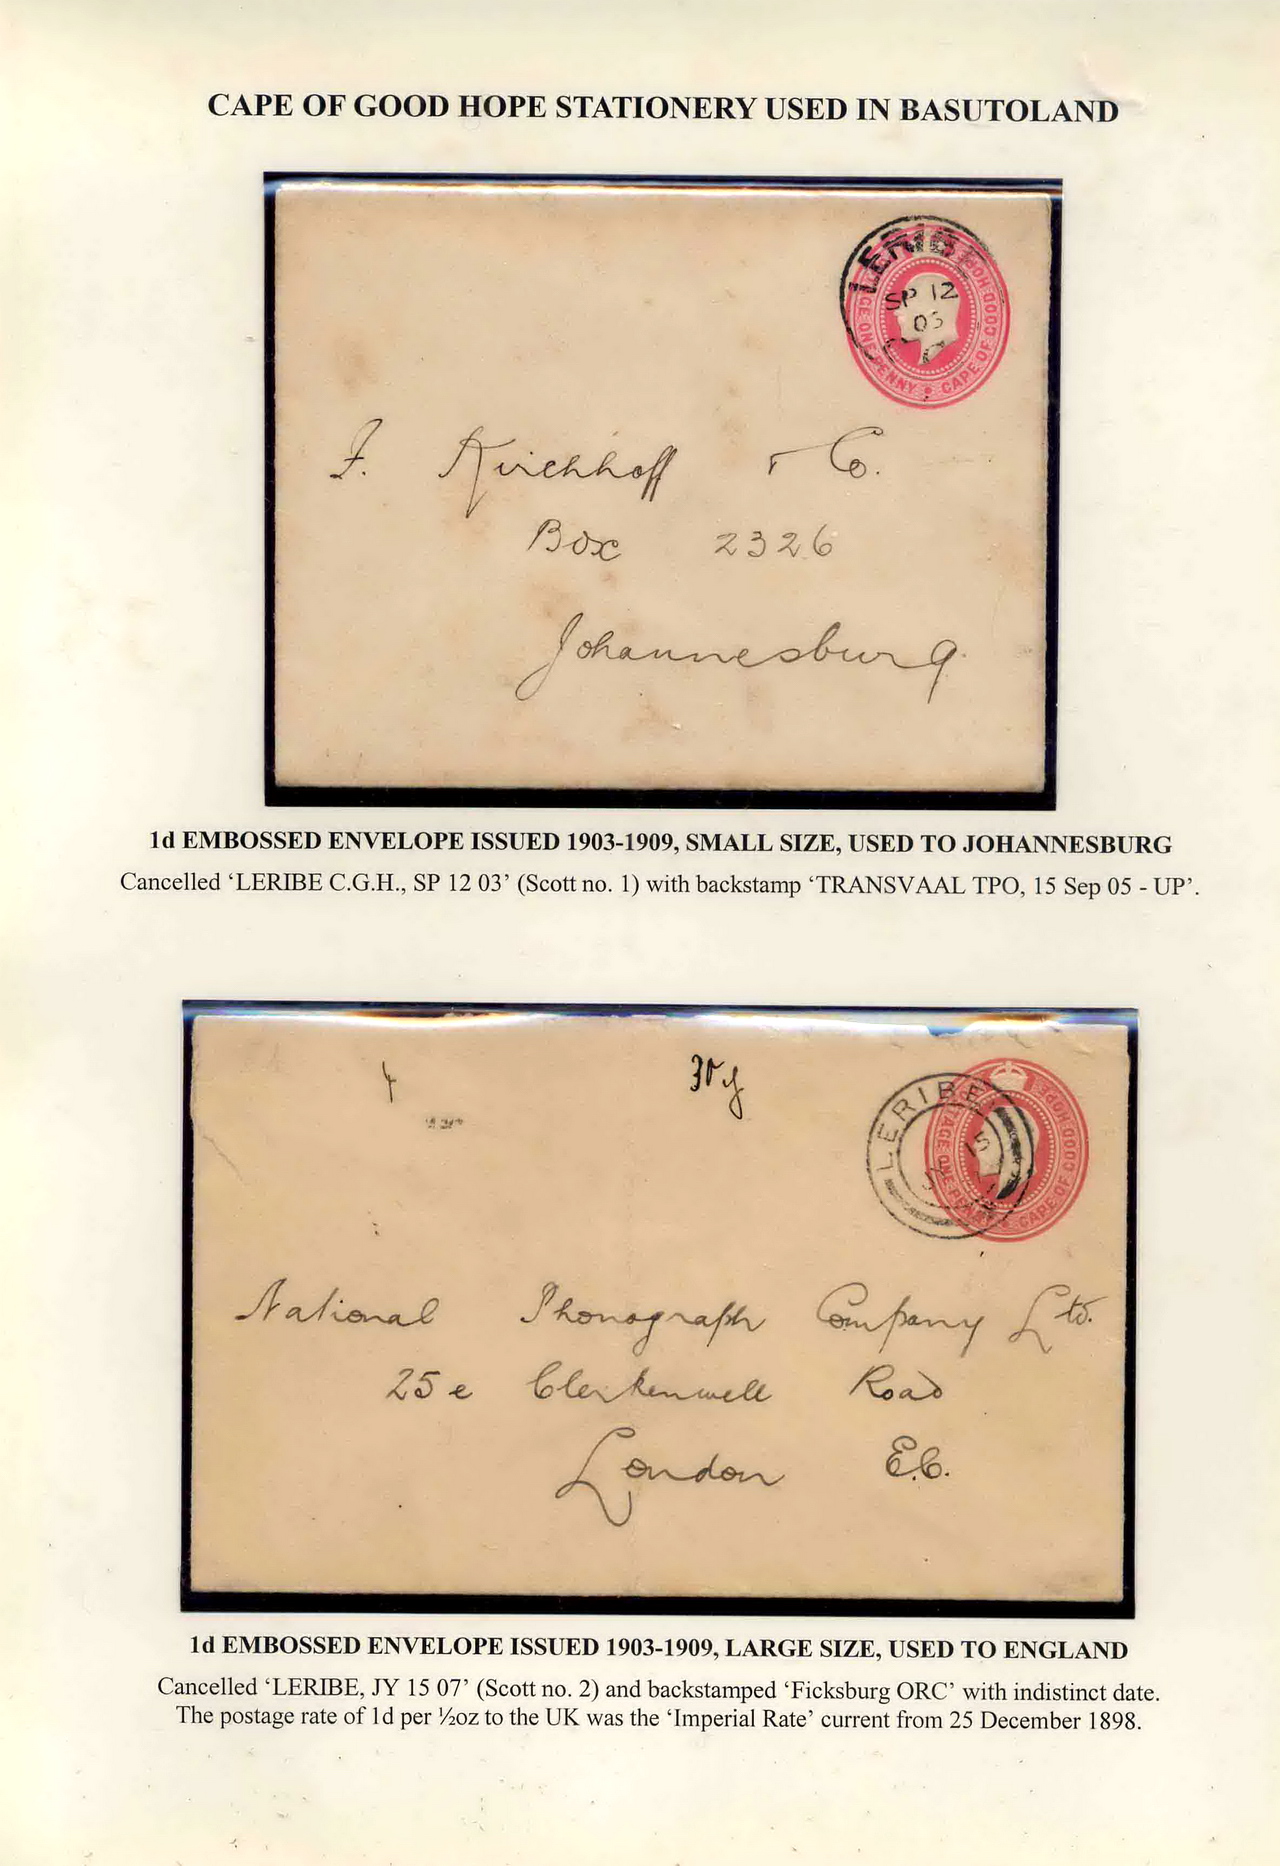 CAPE OF GOOD HOPE STATIONERY USED IN BASUTOLAND
LERIBE
SP 12
05
POSTAGE ONE PENNY * CAPE OF GOOD HOPE
F. Kirchhoff & Co.
Box 2326
Johannesburg.
1d EMBOSSED ENVELOPE ISSUED 1903-1909, SMALL SIZE, USED TO JOHANNESBURG
Cancelled ‘LERIBE C.G.H., SP 12 03’ (Scott no. 1) with backstamp ‘TRANSVAAL TPO, 15 Sep 05 - UP’.
LERIBE
15
POSTAGE ONE PENNY * CAPE OF GOOD HOPE
National Phonograph Company Ltd.
25 e Clerkenwell Road
London E.C.
1d EMBOSSED ENVELOPE ISSUED 1903-1909, LARGE SIZE, USED TO ENGLAND
Cancelled ‘LERIBE, JY 15 07’ (Scott no. 2) and backstamped ‘Ficksburg ORC’ with indistinct date.
The postage rate of 1d per ½oz to the UK was the ‘Imperial Rate’ current from 25 December 1898.